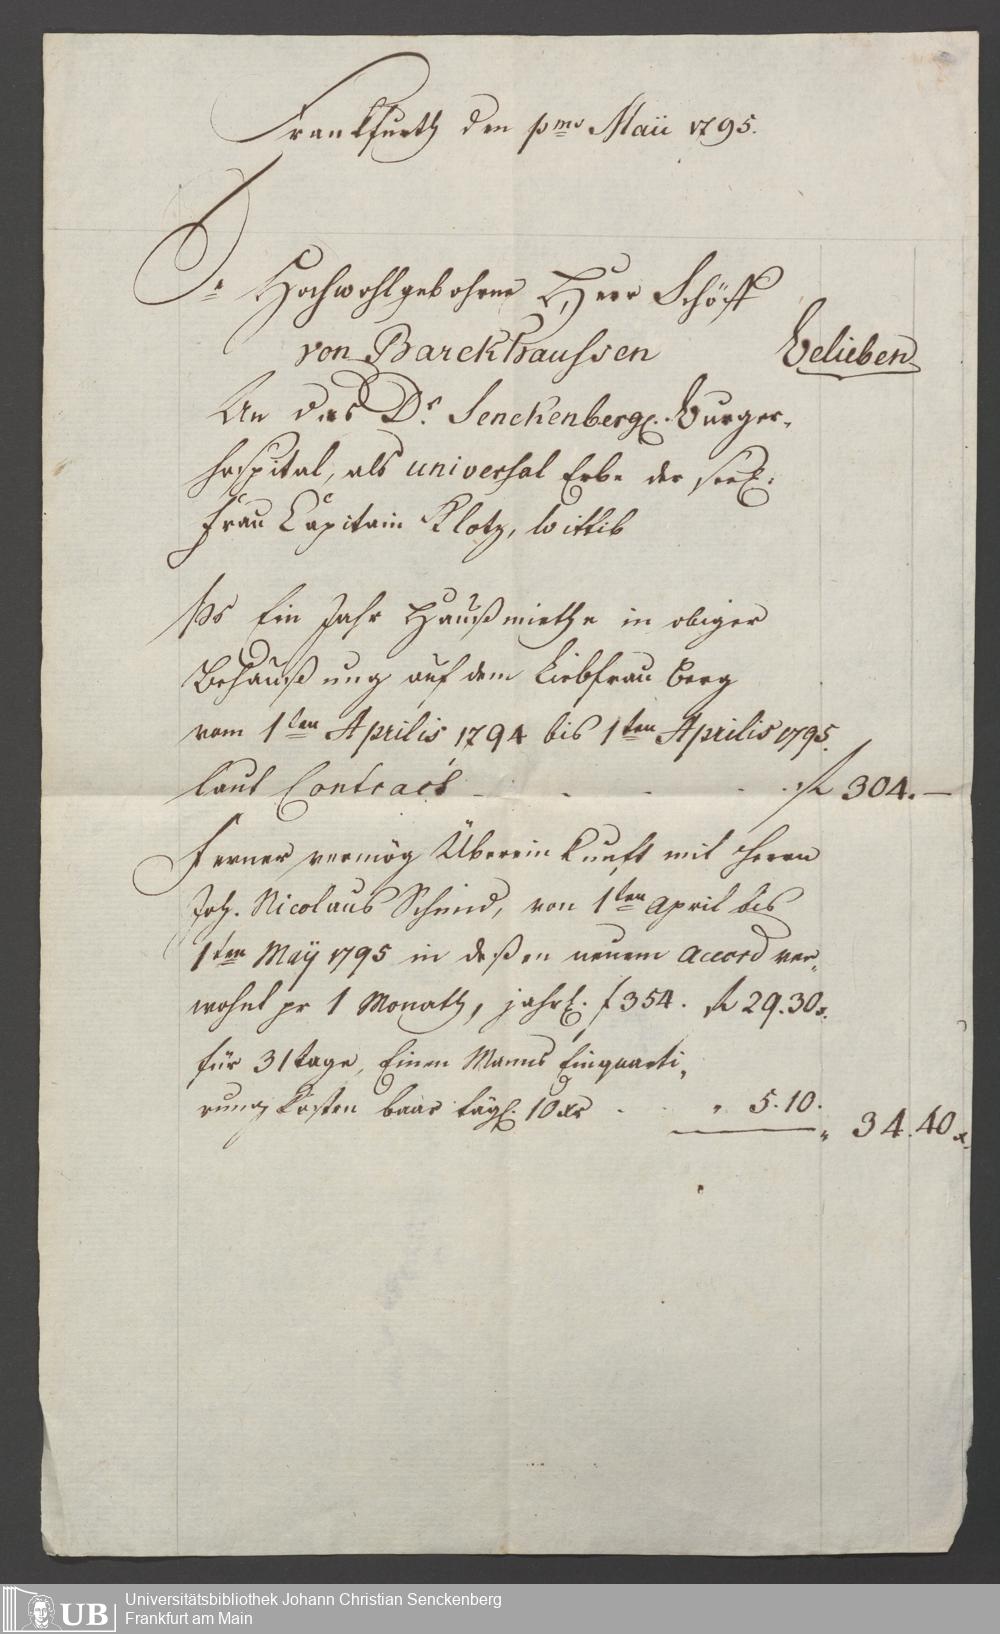 Franckfurth den pmo Maii 1795.
Sr Hochwohlgebohrne Herr Schöff
von Barckhaussen belieben
An das Dr. Senckenbergl. Burger-
hospital, als universal Erbe der seel.
Frau Capitain Klotz, Wittib
Ein Jahr Haußmiethe in obiger
Behaußung auf dem Liebfrau berg
vom 1ten Aprilis 1794 bis 1ten Aprilis 1795.
laut Contract - - - - f 304. —
Ferner vermög Übereinkunft mit Herrn
Joh. Nicolaus Schmid, von 1ten April bis
1ten Maÿ 1795 in deßen neuem Accord ver-
wohnt pr 1 Monath, jährl. f 354. f 29.30x.
für 31 tage, Einen Manns Einquarti-
rungs kosten baar tägl. 10 xr - - " 5.10.
" 34.40x.
UB
Universitätsbibliothek Johann Christian Senckenberg
Frankfurt am Main